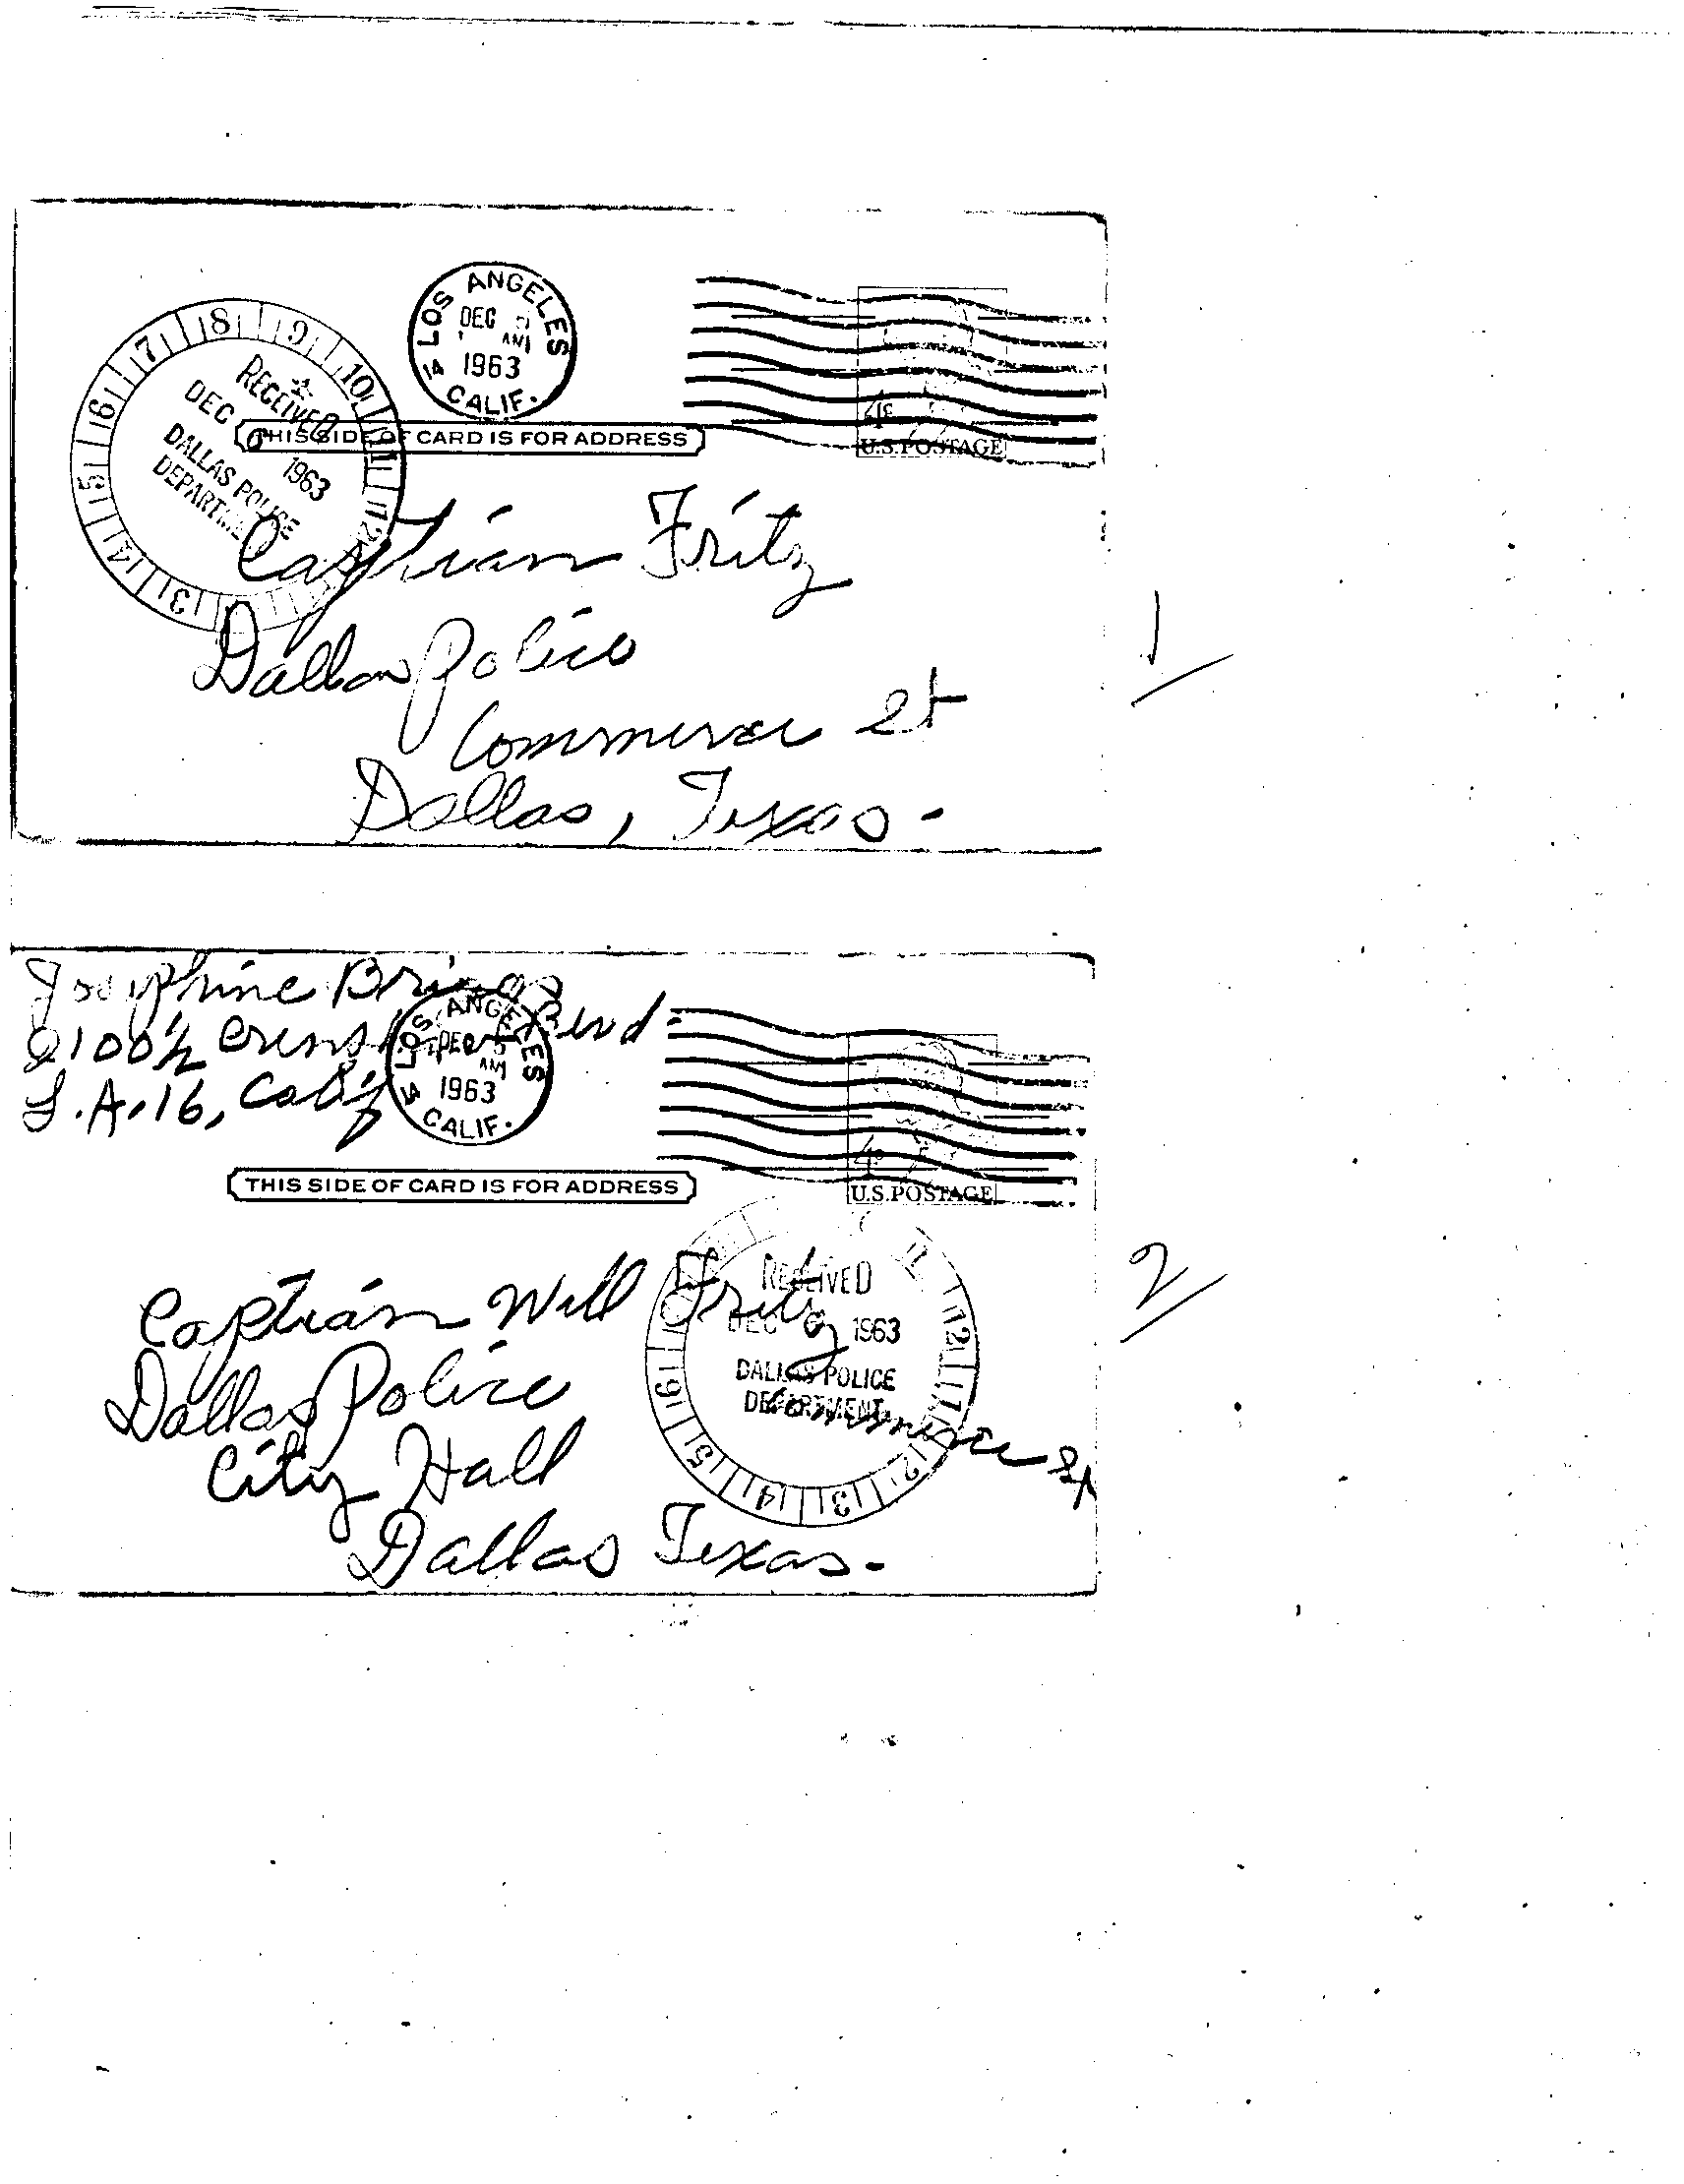 LOS ANGELES
DEC
AM
1963
14 CALIF.
RECEIVED
DEC 6 1963
DALLAS POLICE
DEPARTMENT
THIS SIDE OF CARD IS FOR ADDRESS
4¢
U.S.POSTAGE
Captián Fritz
Dallas Police
Commerce St
Dallas, Texas.
1
Josephine
2100½ Blvd.
L.A. 16, Calif
LOS ANGELES
DEC 5
AM
1963
14 CALIF.
4¢
U.S.POSTAGE
THIS SIDE OF CARD IS FOR ADDRESS
RECEIVED
DEC 6 1963
DALLAS POLICE
DEPARTMENT
Captián Will Fritz
Dallas Police
City Hall Commerce St
Dallas Texas.
2